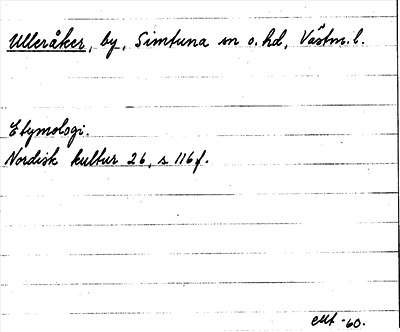 Ulleråker, by, Simtuna sn o. hd, Västm. l.
Etymologi.
Nordisk kultur 26, s. 116 f.
-60.